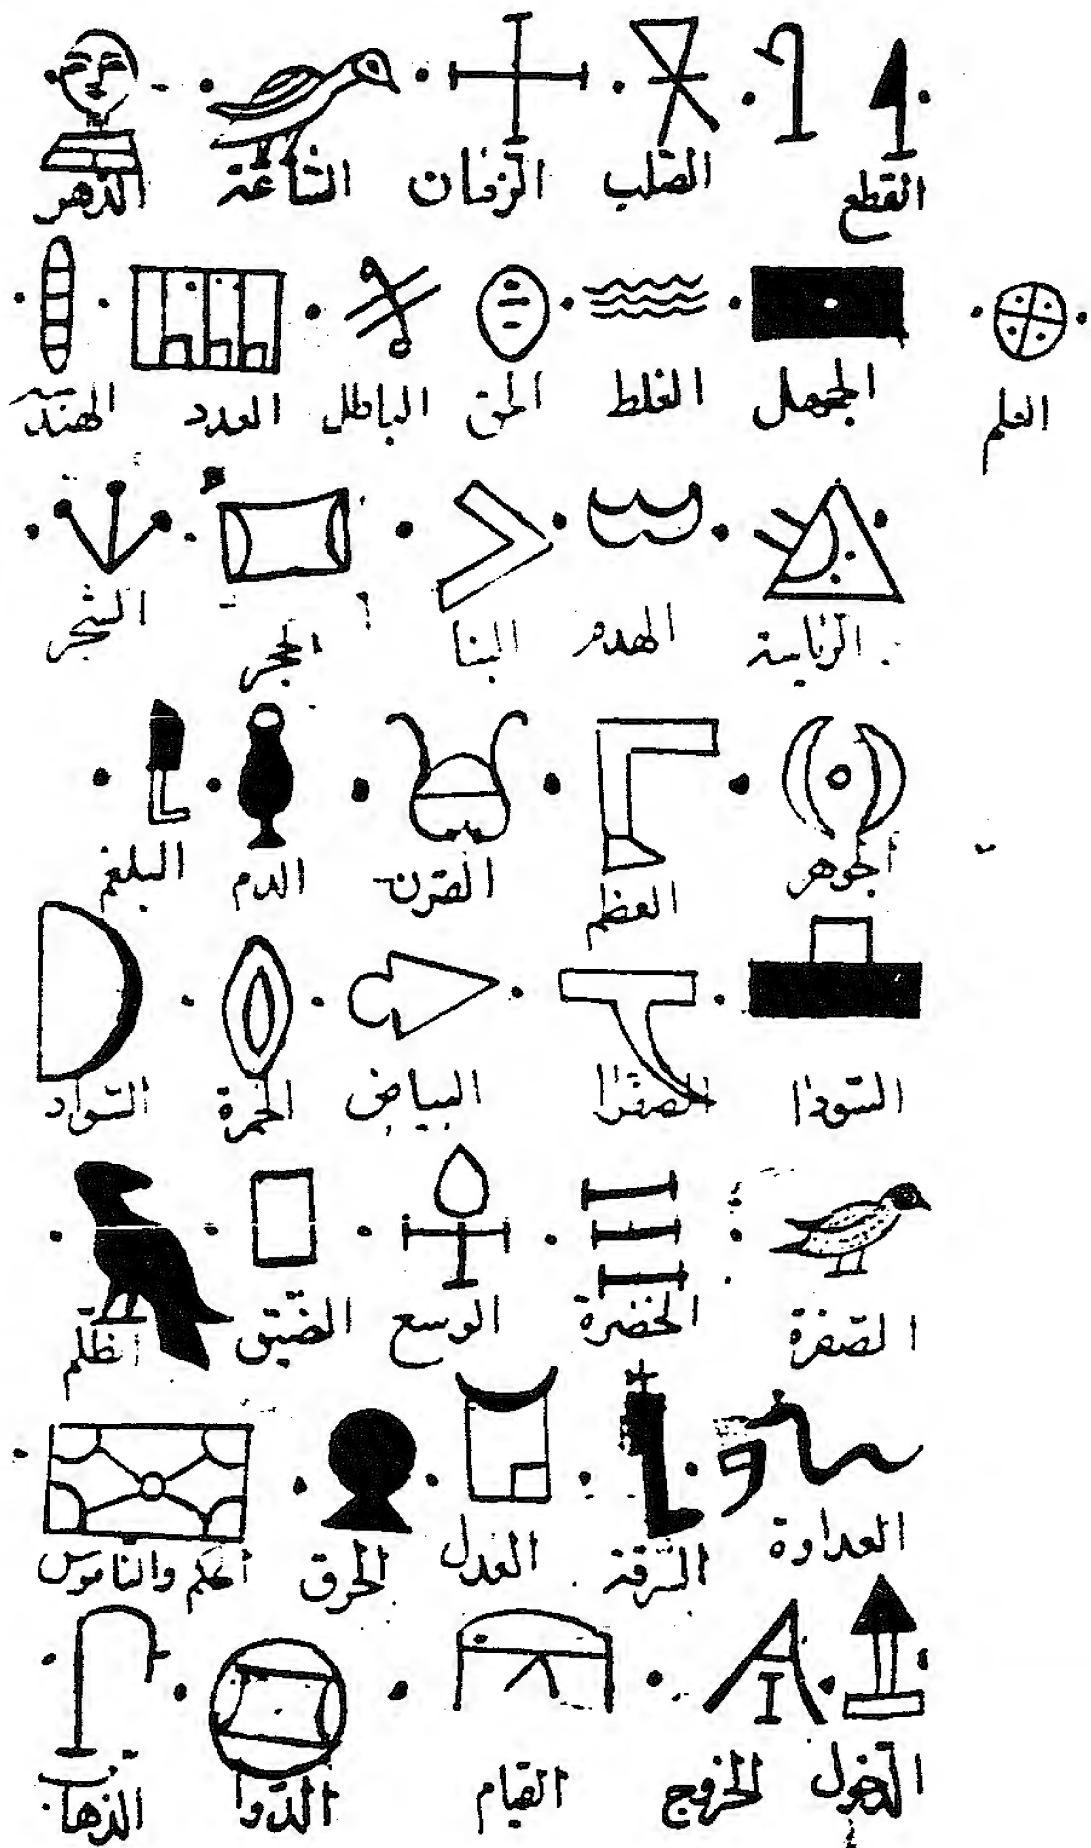 القطع الصلب الزمان الساعة الدهر
العلم الجهل الغلط الحق الباطل العدد الهندسة
الهدم البنا الحجر الشجر
الجوهر العظم القرن الدم البلغم
السودا الصفرا البياض الحمرة السواد
الصفرة الخضرة الوسع الضيق الظلم
العداوة السرقة العدل الحرق الحكم والناموس
الدخول الخروج القيام الدوا الذهاب